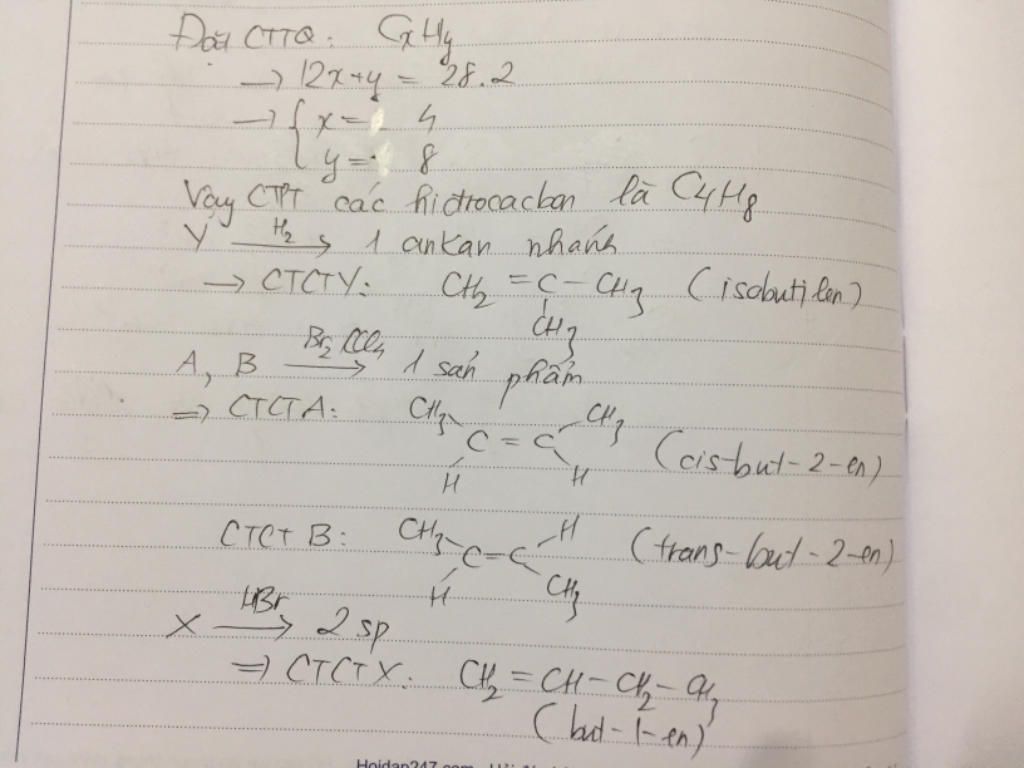 Đặt CTTQ: CxHy
→ 12x+y = 28.2
→ { x = 4
y = 8
Vậy CTPT các hiđrocacbon là C4H8
Y H2 → 1 ankan nhánh
→ CTCTY: CH2 = C – CH3 (isobutilen)
CH3
A, B Br2/CCl4 → 1 sản phẩm
⇒ CTCTA: CH3 CH3
C = C (cis-but-2-en)
H H
CTCT B: CH3 H (trans-but-2-en)
C = C
H CH3
X HBr → 2 sp
⇒ CTCTX: CH2 = CH – CH2 – CH3
(but-1-en)
Hoidap247.com